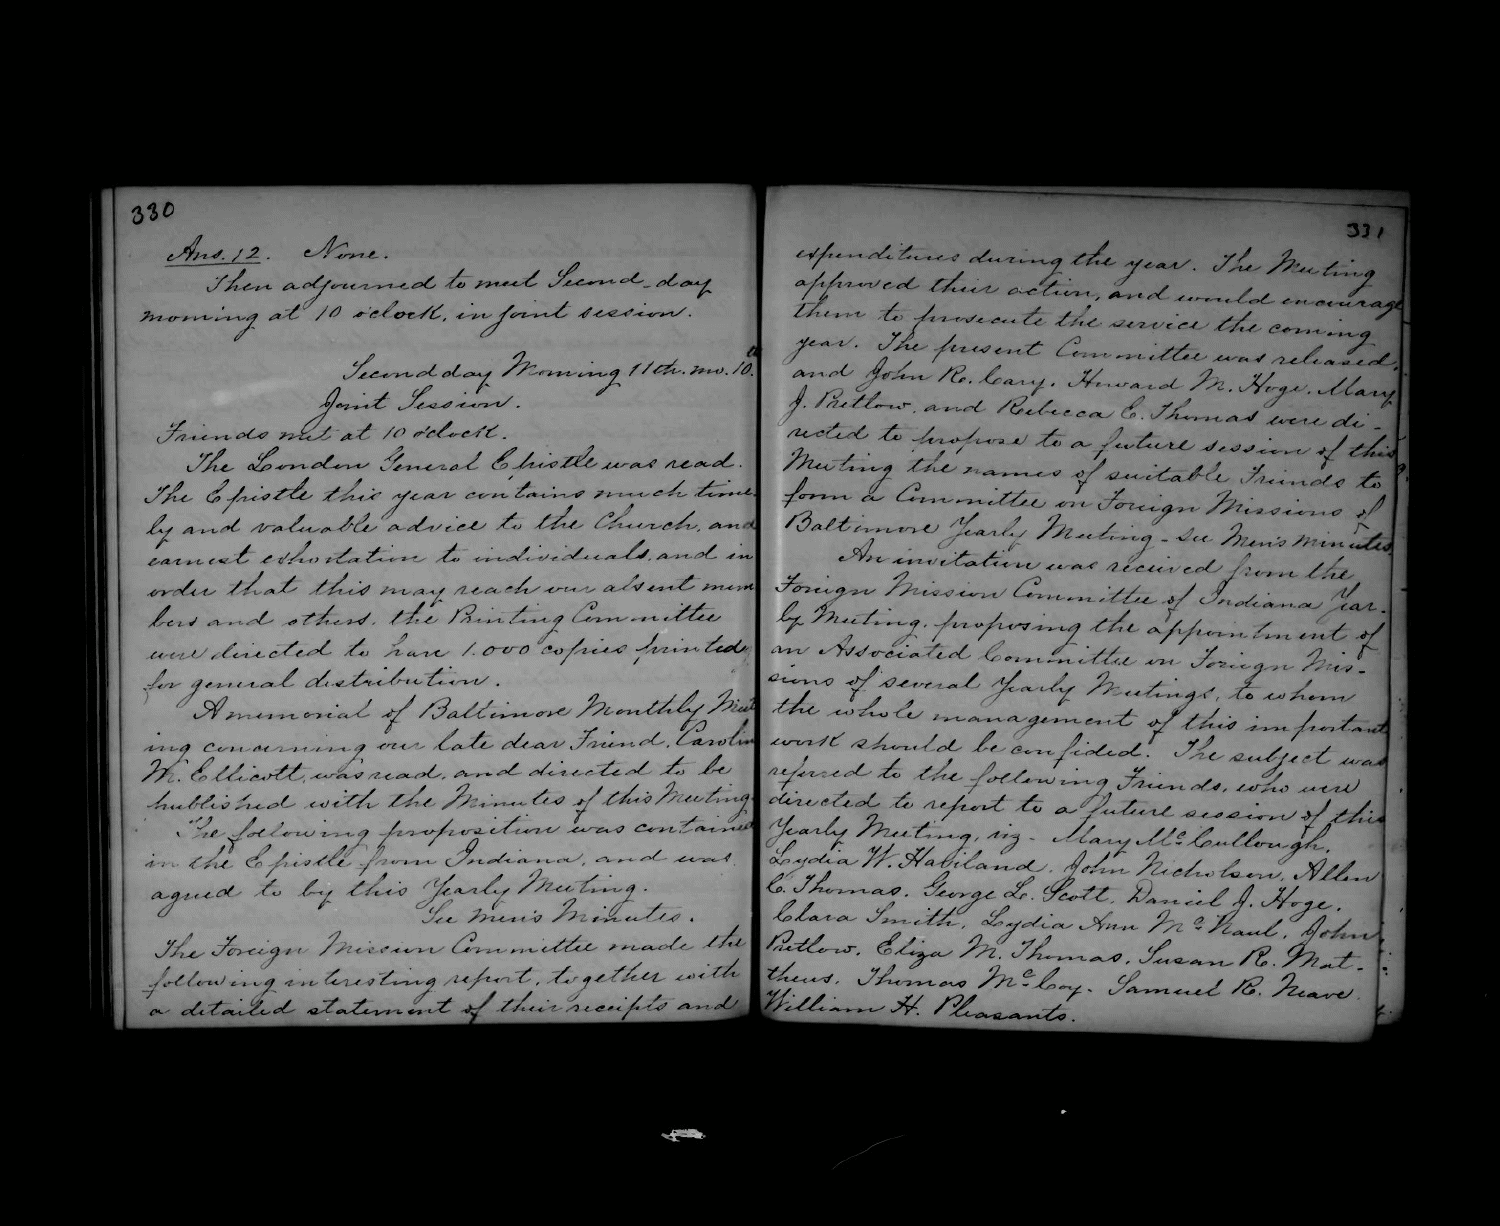 330
Ans. 12. None.
Then adjourned to meet Second-day
morning at 10 o'clock, in joint session.
Second day Morning 11th. mo. 10.
Joint Session.
Friends met at 10 o'clock.
The London General Epistle was read.
The Epistle this year contains much time-
ly and valuable advice to the Church, and
earnest exhortation to individuals, and in
order that this may reach our absent mem
bers and others, the Printing Committee
were directed to have 1.000 copies printed
for general distribution.
A memorial of Baltimore Monthly Meet
ing concerning our late dear Friend, Carolin
M. Ellicott, was read, and directed to be
published with the Minutes of this Meeting.
The following proposition was contained
in the Epistle from Indiana, and was
agreed to by this Yearly Meeting.
See men's Minutes.
The Foreign Mission Committee made the
following interesting report, together with
a detailed statement of their receipts and
331
expenditures during the year. The Meeting
approved their action, and would encourage
them to prosecute the service the coming
year. The present Committee was released,
and John R. Cary, Howard M. Hoge, Mary
J. Pretlow, and Rebecca C. Thomas were di-
rected to propose to a future session of this
Meeting the names of suitable Friends to
form a Committee on Foreign Missions of
Baltimore Yearly Meeting - see Men's minutes.
An invitation was received from the
Foreign Mission Committee of Indiana Year-
ly Meeting, proposing the appointment of
an Associated Committee on Foreign Mis-
sions of several Yearly Meetings, to whom
the whole management of this important
work should be confided. The subject was
referred to the following Friends, who were
directed to report to a future session of this
Yearly Meeting, viz - Mary McCullough,
Lydia W. Haviland, John Nicholson, Allen
C. Thomas, George L. Scott, Daniel J. Hoge,
Clara Smith, Lydia Ann McNaul, John
Pretlow, Eliza M. Thomas, Susan R. Mat-
thews, Thomas McCoy, Samuel R. Neave,
William H. Pleasants.